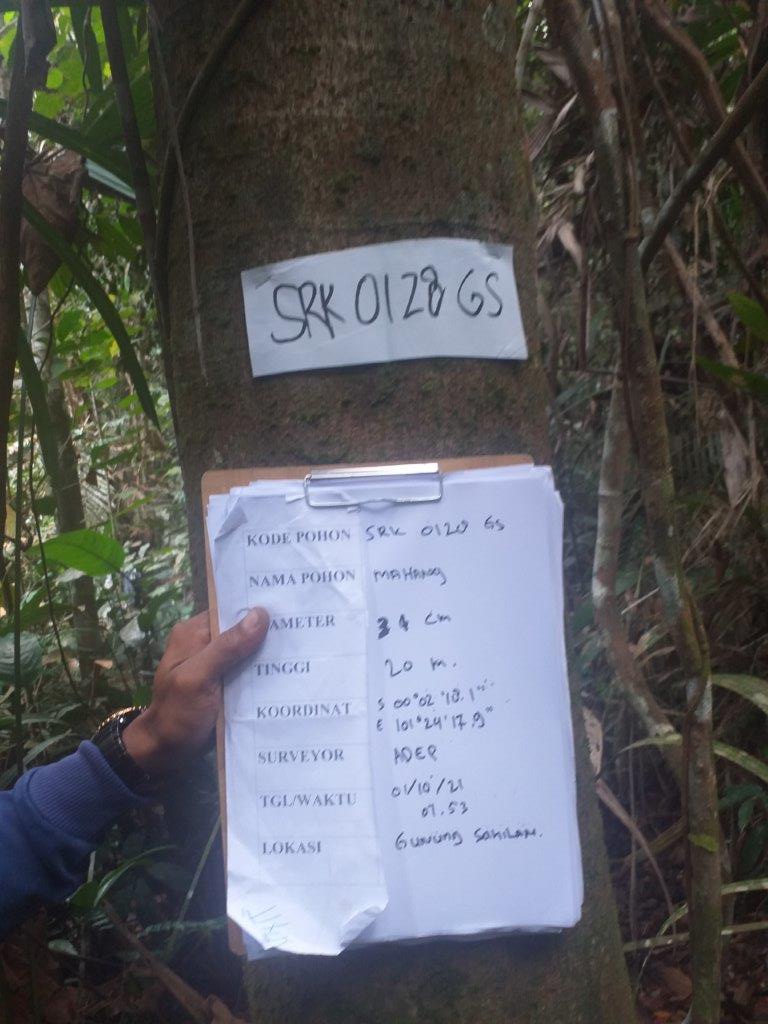 SRK 0128 GS
KODE POHON SRK 0128 GS
NAMA POHON MAHANG
AMETER 34 cm
TINGGI 20 m.
KOORDINAT S 00°02'18.1"
E 101°24'17.9"
SURVEYOR ADEP
TGL/WAKTU 01/10/21
07.53
LOKASI Gunung Sahilan.